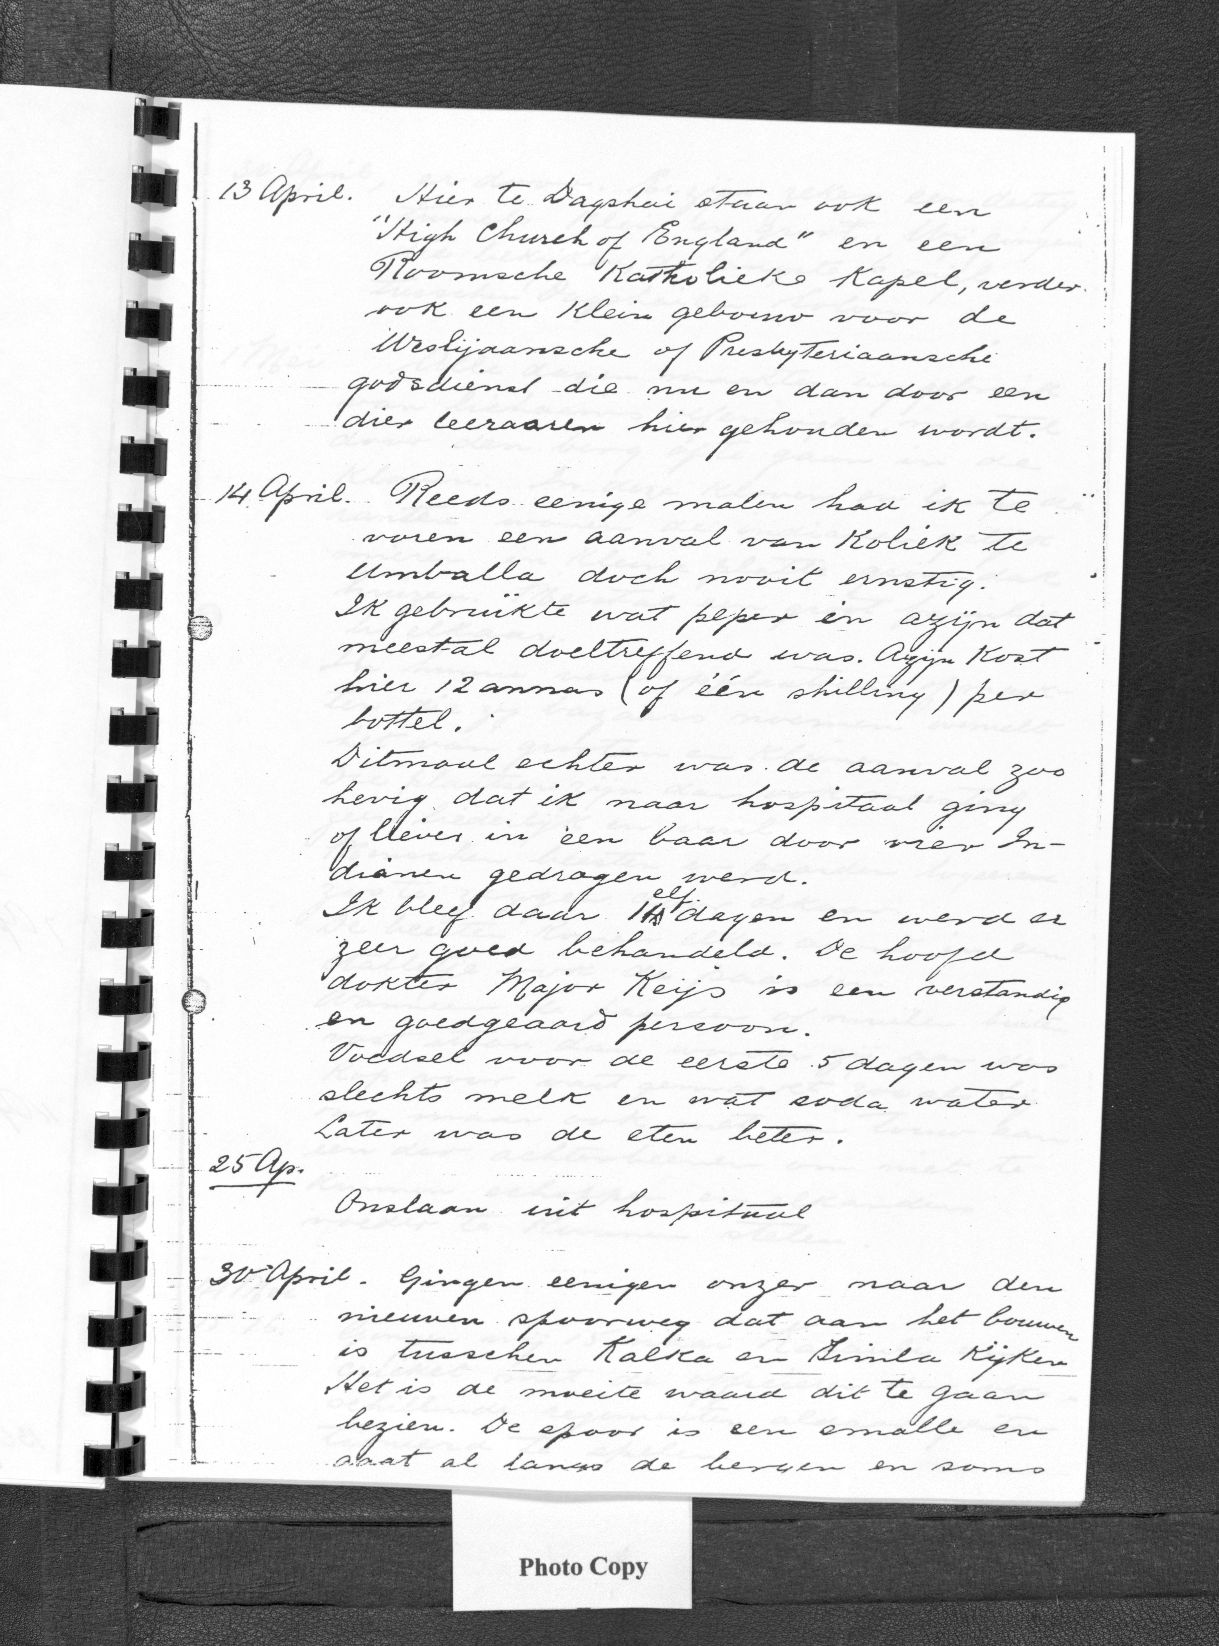 13 April. Hier te Dagshai staan ook een
"High Church of England" en een
Roomsche Katholieke Kapel, verder
ook een klein gebouw voor de
Weslijaansche of Presbyteriaansche
godsdienst die nu en dan door een
dier leeraaren hier gehouden wordt.
14 April. Reeds eenige malen had ik te
voren een aanval van Koliek te
Umballa doch nooit ernstig.
Ik gebruikte wat peper in azijn dat
meestal doeltreffend was. Azijn Kost
hier 12 annas (of één shilling) per
bottel.
Ditmaal echter was de aanval zoo
hevig dat ik naar hospitaal ging
of liever in een baar door vier In-
dianen gedragen werd.
Ik bleef daar elf dagen en werd er
zeer goed behandeld. De hoofd
dokter Major Keijs is een verstandig
en goedgeaard persoon.
Voedsel voor de eerste 5 dagen was
slechts melk en wat soda water
Later was de eten beter.
25 Ap.
Onslaan uit hospitaal
30 April. Gingen eenigen onzer naar den
nieuwen spoorweg dat aan het bouwen
is tusschen Kalka en Simla Kijken
Het is de moeite waard dit te gaan
bezien. De spoor is een smalle en
gaat al langs de bergen en soms
Photo Copy